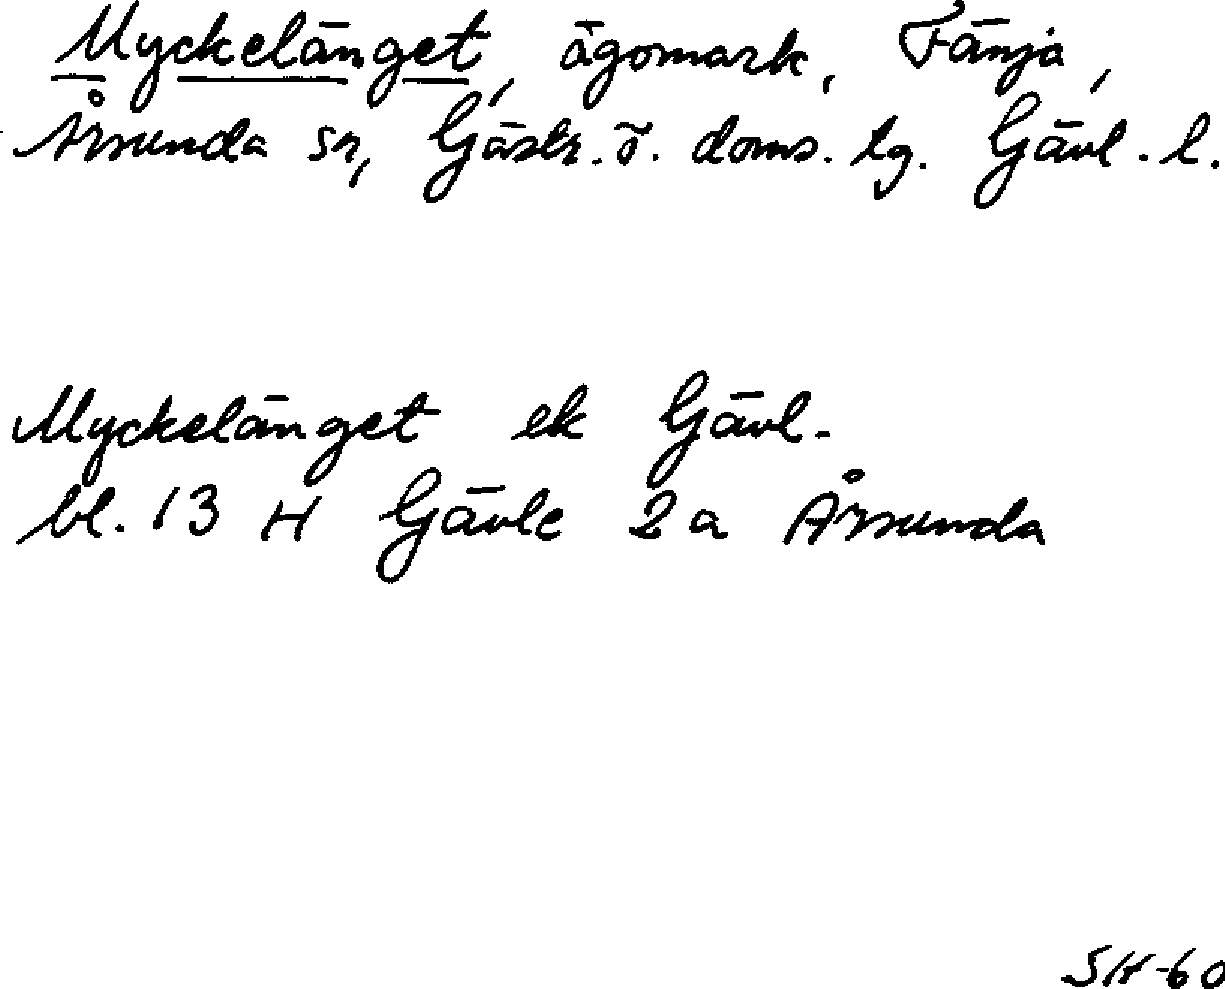 Myckelänget, ägomark, Fänja,
Årsunda sn, Gästr. ö. doms. tg. Gävl. l.
Myckelänget ek Gävl.
bl. 13 H Gävle 2 a Årsunda
SH-60